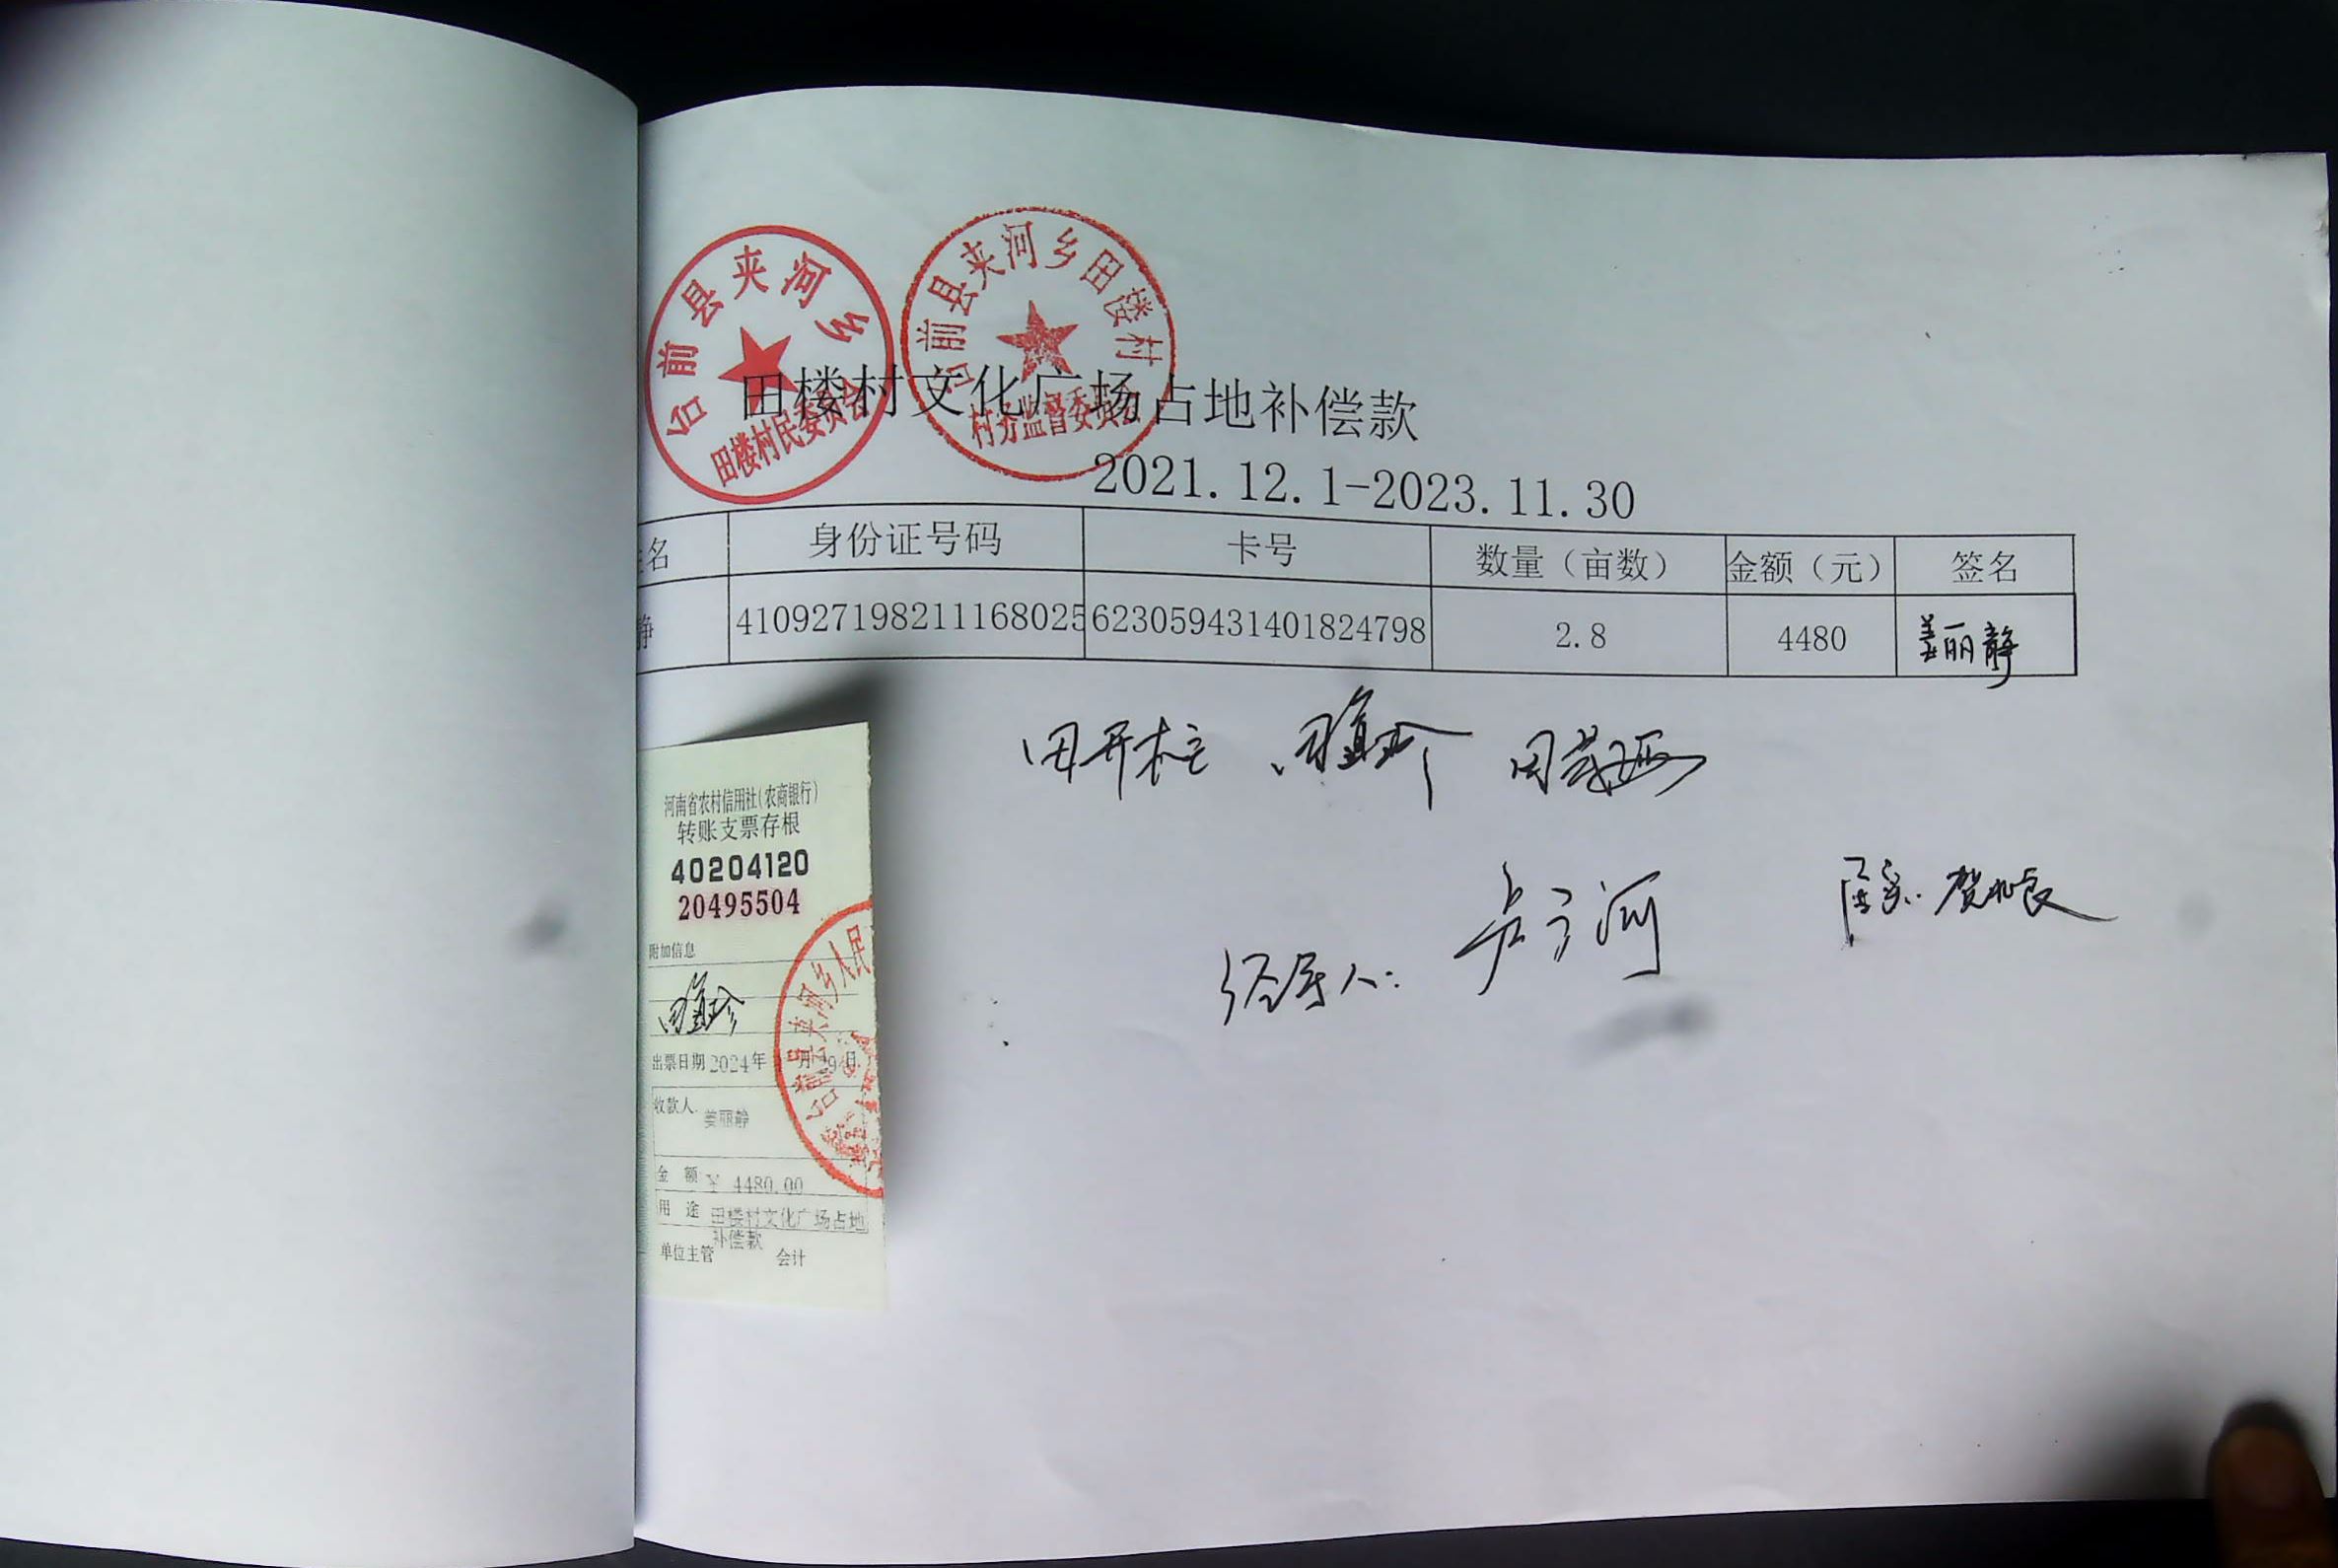 台前县夹河乡
田楼村民委员会
台前县夹河乡田楼村
村务监督委员会
田楼村文化广场占地补偿款
2021.12.1-2023.11.30
名 身份证号码 卡号 数量（亩数） 金额（元） 签名
静 410927198211168025 623059431401824798 2.8 4480 姜丽静
田开柱
经手人：
河南省农村信用社(农商银行)
转账支票存根
40204120
20495504
附加信息
台前县夹河乡人民
出票日期 2024年 月 日
收款人 姜丽静
金 额 ¥ 4480.00
用 途 田楼村文化广场占地
补偿款
单位主管 会计